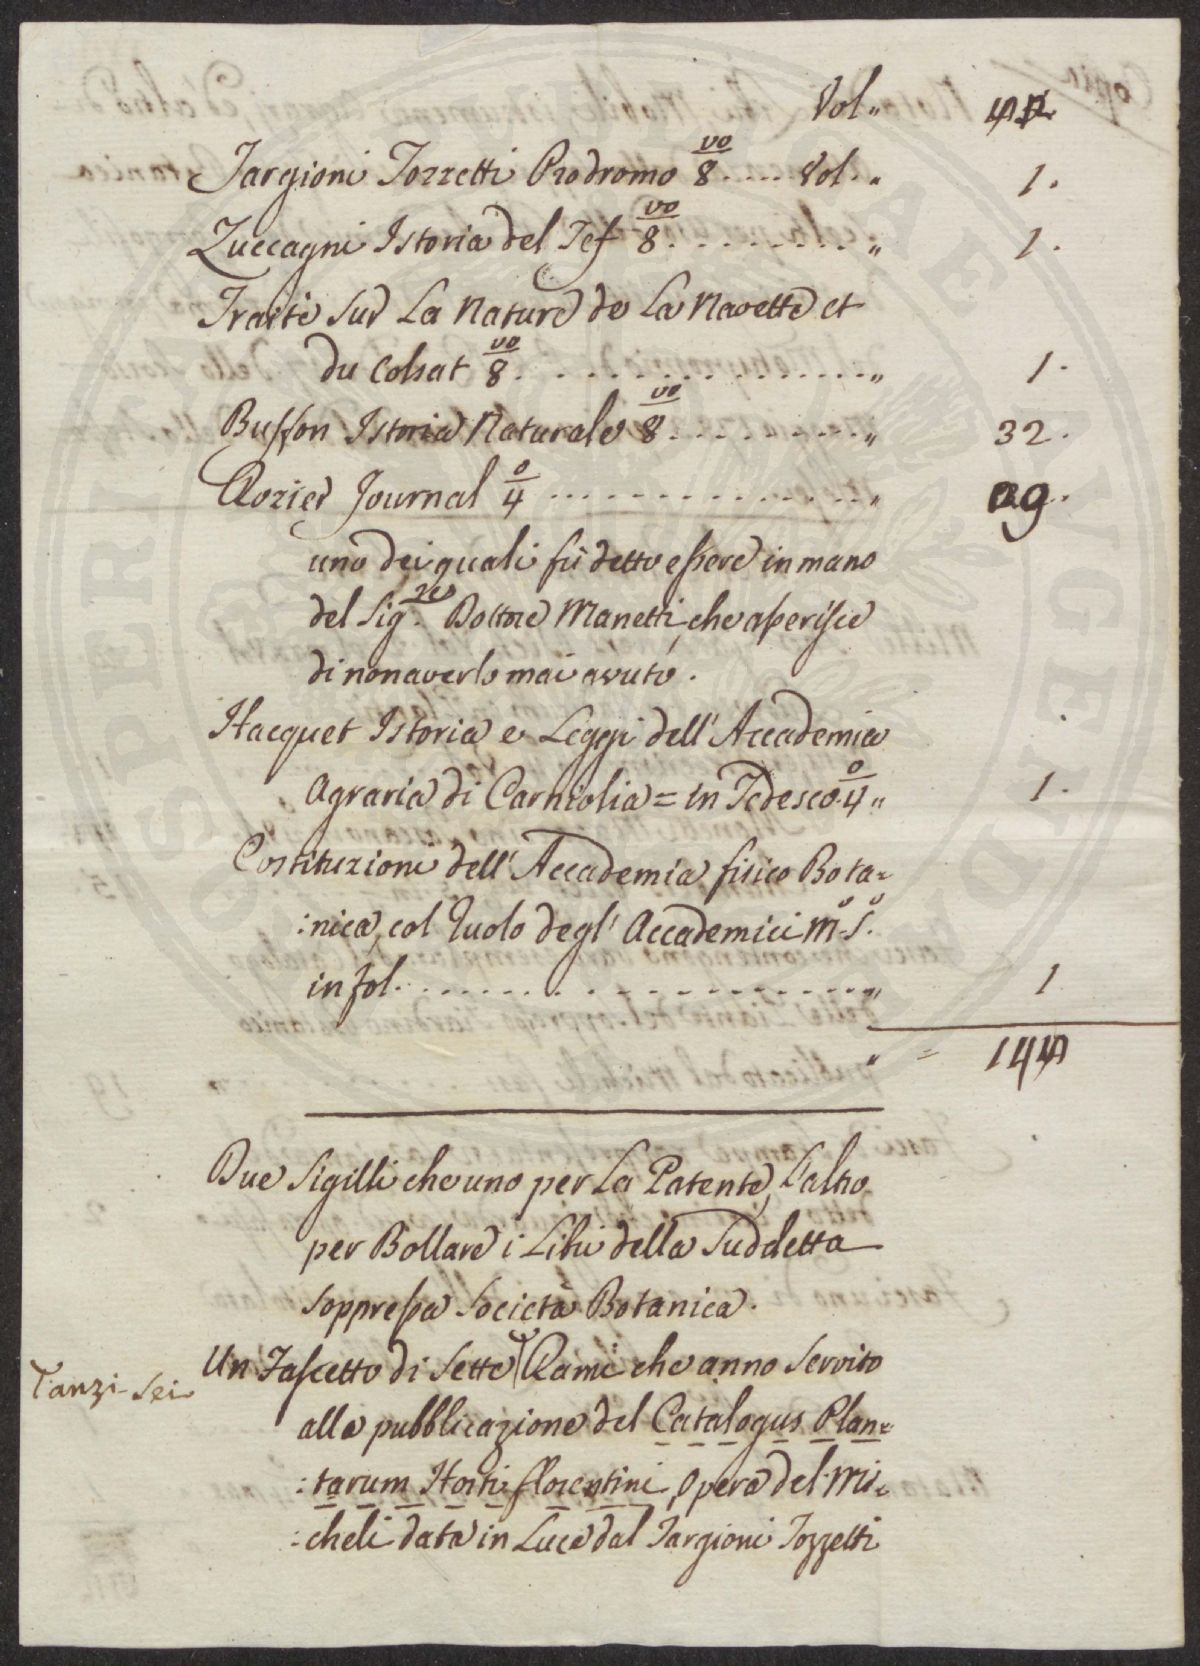 Vol„
Targioni Tozzetti Prodromo 8vo .... Vol. „ 1.
Zuccagni Istoria del Tef 8vo ........ „ 1.
Traité sur La Nature de La Navette et
du Colsat 8vo ............... „ 1.
Buffon Istoria Naturale 8vo ........ „ 32.
Rozier Journal 4o ............... „
uno dei quali fù detto essere in mano
del Sig.re Dottore Manetti, che asserisce
di non averlo mai avuto.
Hacquet Istoria e Leggi dell' Accademia
Agraria di Carniolia = in Tedesco. 4o „ 1.
Costituzioni dell' Accademia fisico Bota=
:nica, col Ruolo degl' Accademici M.o S.o
in fol. ............... „ 1
„ =
Due Sigilli che uno per La Patente, L'altro
per Bollare i Libri della Suddetta
soppressa Società Botanica.
Un Fascetto di Sette Rami che anno servito
Tanzi Sei
alla pubblicazione del Catalogus Plan=
:tarum Horti florentini, Opera del Mi=
:cheli data in Luce dal Targioni Tozzetti